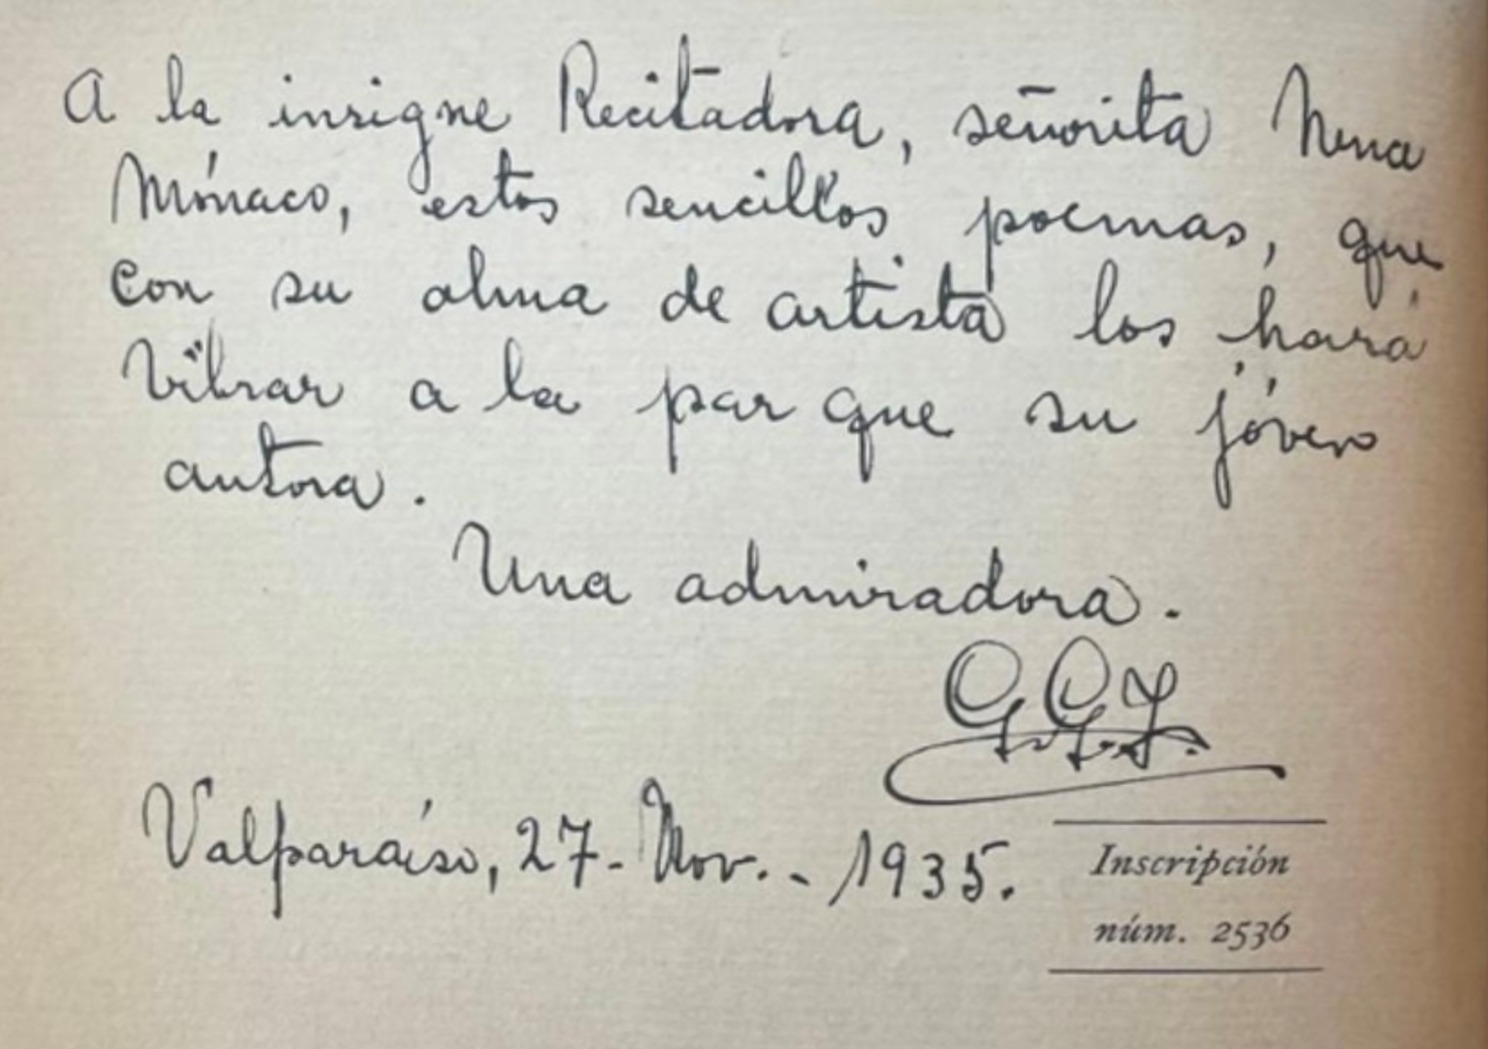 A la insigne Recitadora, señorita Nena
Mónaco, estos sencillos poemas, que
con su alma de artista los hará
vibrar a la par que su jóven
autora.
Una admiradora.
G.G.J.
Valparaíso, 27- Nov. - 1935.
Inscripción
núm. 2536